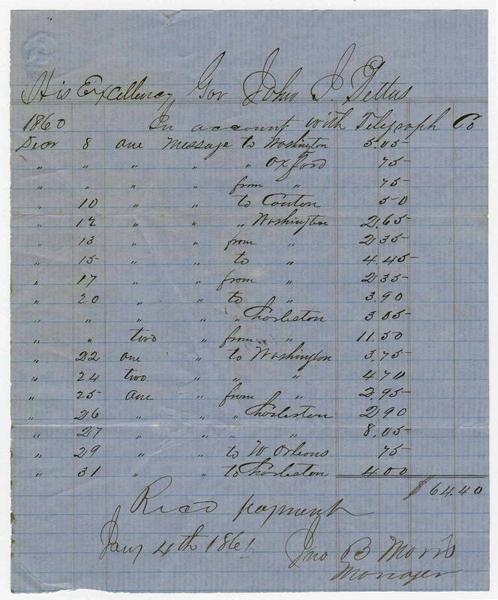 His Excellency Gov John J. Pettus
1860 In account with Telegraph Co
Decr 8 one message to Washington 5.05
" " " " " Oxford 75
" " " " from " 75
" 10 " " to Canton 50
" 12 " " " Washington 2.65
" 13 " " from " 2.35
" 15 " " to " 4.45
" 17 " " from " 2.35
" 20 " " to " 3.90
" " " " " Charleston 3.05
" " two " from " 11.50
" 22 one " to Washington 3.75
" 24 two " " " 4.70
" 25 one " from " 2.95
" 26 " " " Charleston 2.90
" 27 " " " " 8.05
" 29 " " to N Orleans 75
" 31 " " to Charleston 4.00
$64.40
Recd payment
Jany 4th 1861
Jno B Morris
Manager